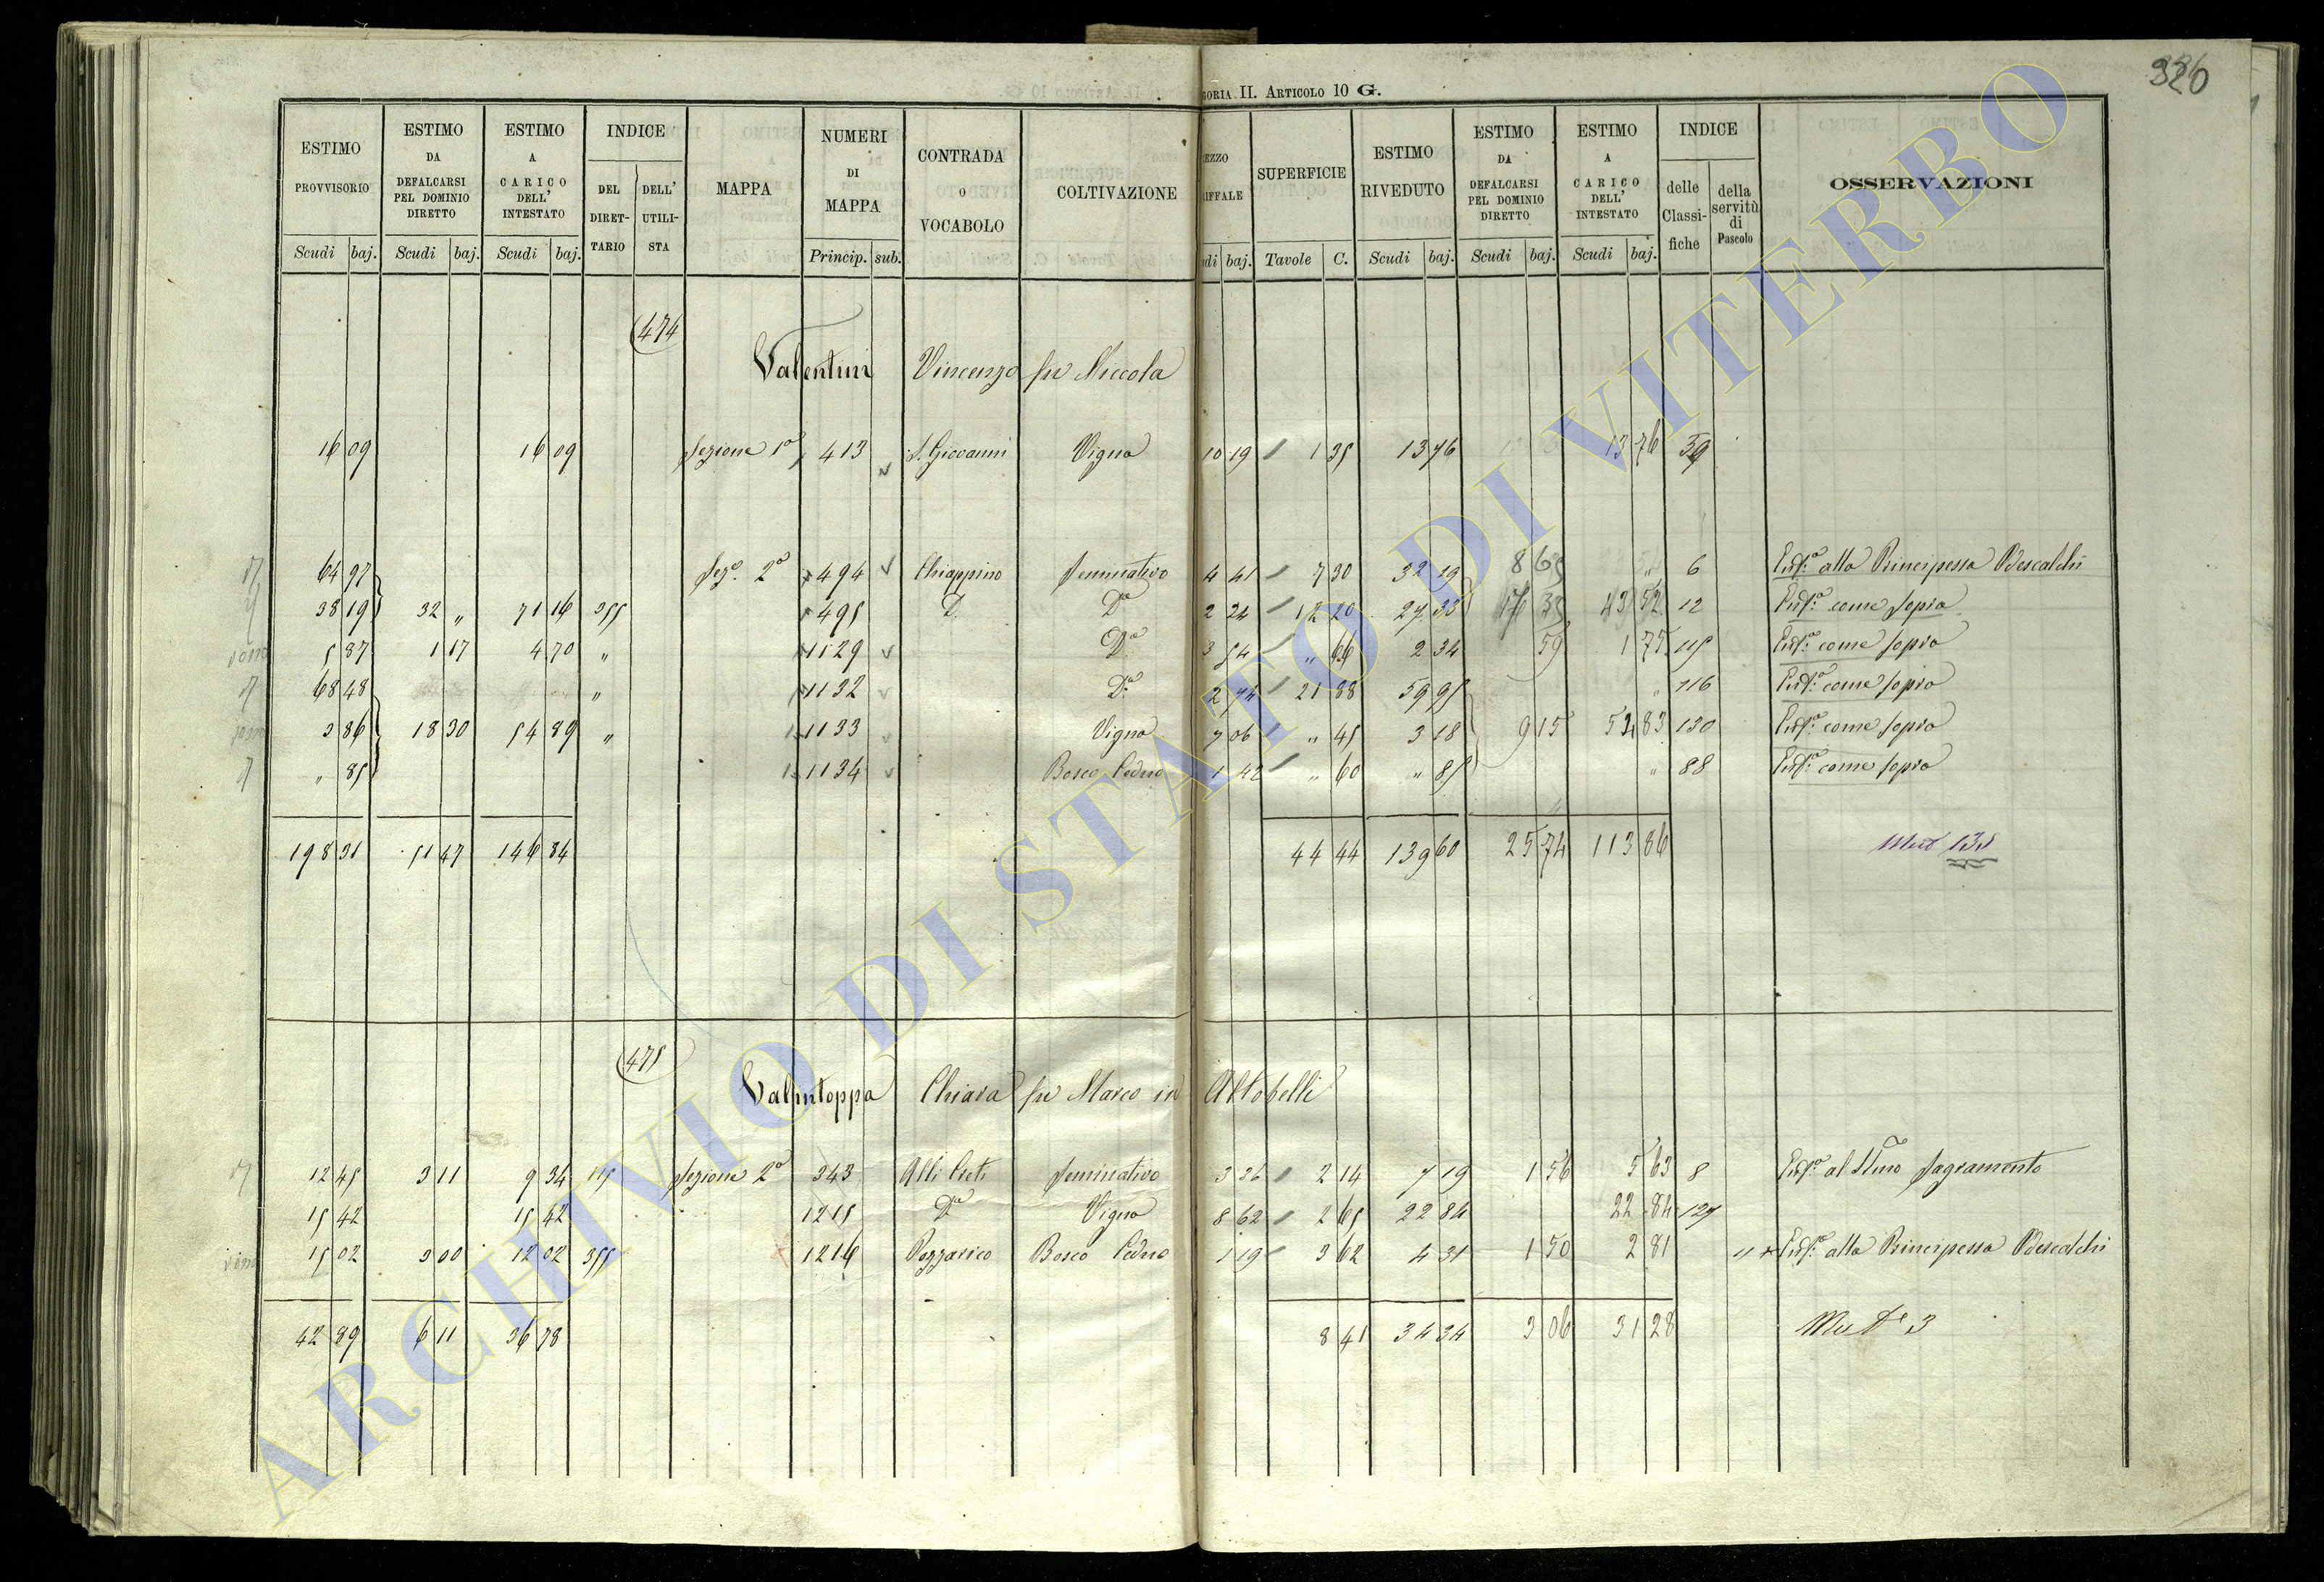 326
GORIA II. ARTICOLO 10 G.
ESTIMO PROVVISORIO Scudi baj.
ESTIMO DA DEFALCARSI PEL DOMINIO DIRETTO Scudi baj.
ESTIMO A CARICO DELL' INTESTATO Scudi baj.
INDICE DEL DIRETTARIO DELL' UTILISTA
MAPPA
NUMERI DI MAPPA Princip. sub.
CONTRADA O VOCABOLO
COLTIVAZIONE
EZZO IFFALE di baj.
SUPERFICIE Tavole C.
ESTIMO RIVEDUTO Scudi baj.
ESTIMO DA DEFALCARSI PEL DOMINIO DIRETTO Scudi baj.
ESTIMO A CARICO DELL' INTESTATO Scudi baj.
INDICE delle Classifiche della servitù di Pascolo
OSSERVAZIONI
474
Valentini Vincenzo fu Niccola
16 09 16 09 Sezione 1a 413 S. Giovanni Vigna 10 19 1 35 13 76 13 76 39
64 97 Sez.e 2a 494 Chiappino Seminativo 4 41 7 30 32 19 8 6 Enf.a alla Principessa Odescalchi
38 19 32 " 71 16 355 495 D. Da 2 24 12 20 27 33 43 52 12 Enf.a come sopra
5 87 1 17 4 70 " 1129 Da 3 54 " 66 2 34 59 1 75 115 Enf.a come sopra
68 48 " 1132 Da 2 74 21 88 59 95 " 116 Enf.a come sopra
3 86 18 30 54 89 " 1133 Vigna 7 06 " 45 3 18 9 15 54 83 130 Enf.a come sopra
" 85 1134 Bosco Ceduo 1 42 " 60 " 85 " 88 Enf.a come sopra
198 31 51 47 146 84 44 44 139 60 25 74 113 86 Mut 135
475
Valintoppa Chiara fu Marco in Altobelli
12 45 3 11 9 34 115 Sezione 2a 343 Alli Preti Seminativo 3 36 2 14 7 19 1 56 5 63 8 Enf.a al SSmo Sagramento
15 42 15 42 1215 Da Vigna 8 62 2 65 22 84 22 84 127
15 02 3 00 12 02 355 1216 Pozzarico Bosco Ceduo 1 19 3 62 4 31 1 50 2 81 11 Enf.a alla Principessa Odescalchi
42 89 6 11 36 78 8 41 34 34 3 06 31 28 Mut e 3
ARCHIVIO DI STATO DI VITERBO